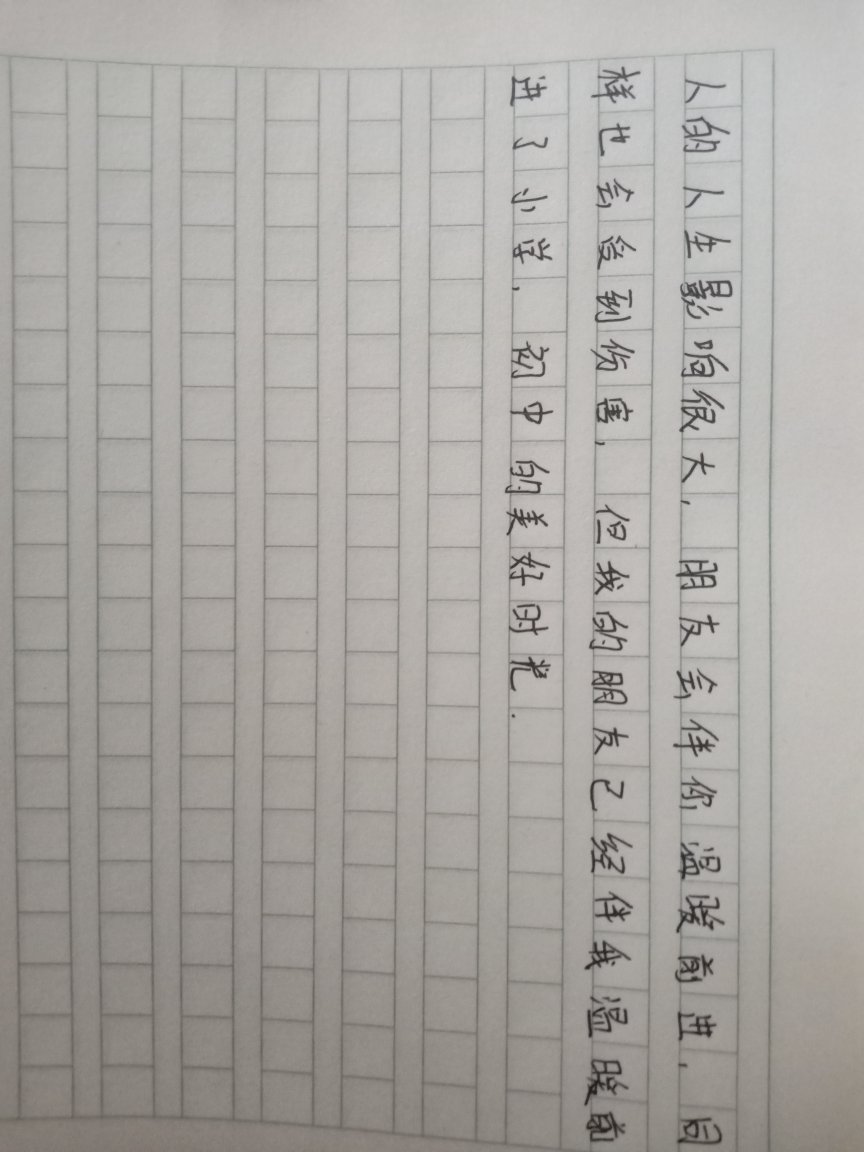 人的人生影响很大，朋友会伴你温暖前进，同
样也会受到伤害，但我的朋友已经伴我温暖前
进了小学，初中的美好时光.